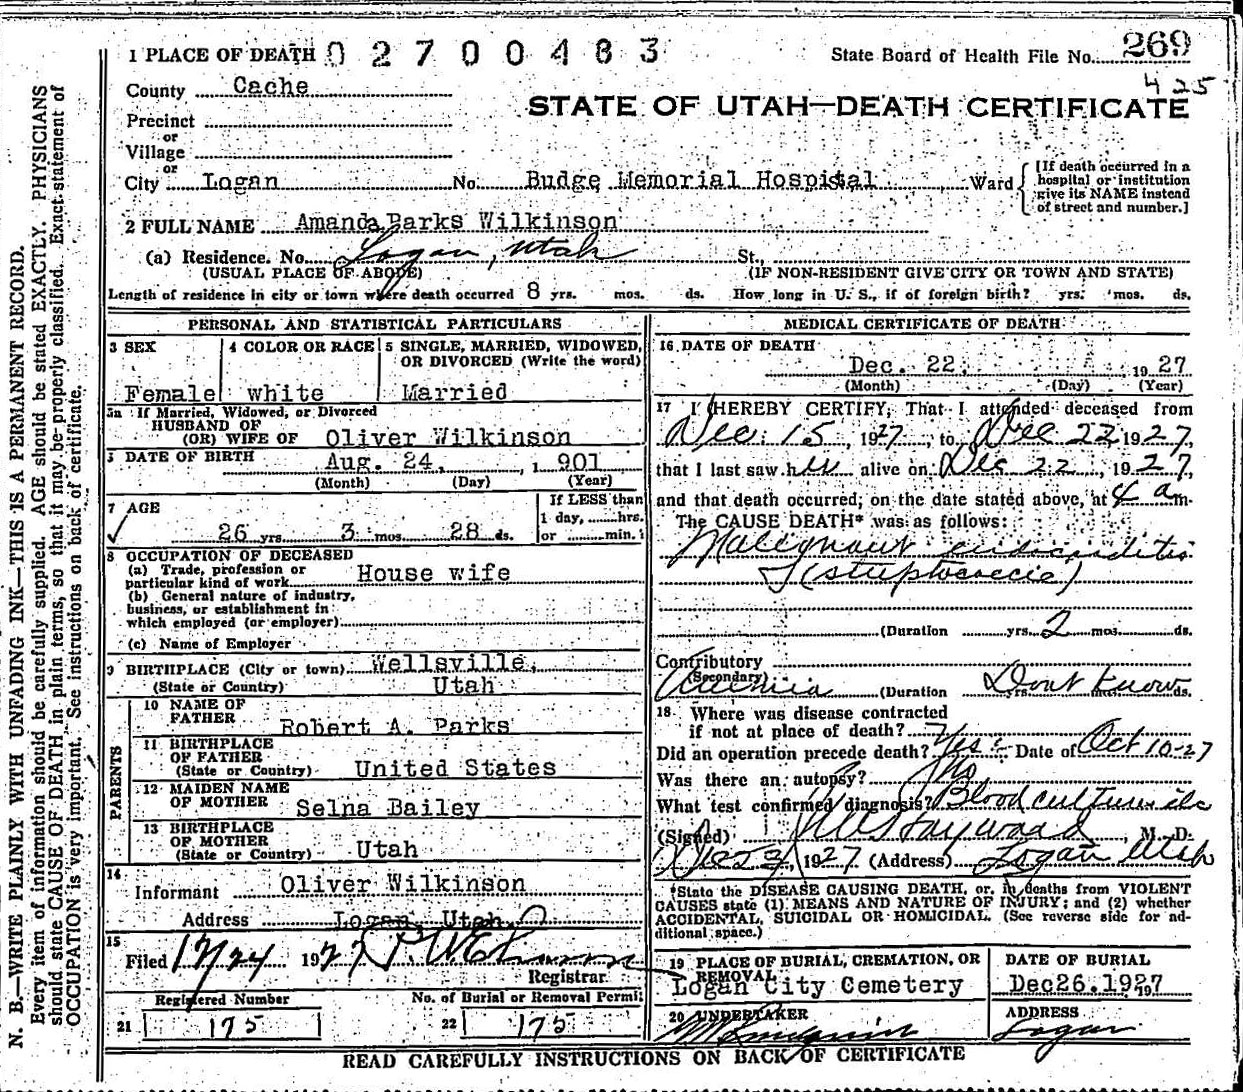 1 PLACE OF DEATH 02700483 State Board of Health File No. 269
425
County Cache
STATE OF UTAH—DEATH CERTIFICATE
Precinct
or
Village
or
City Logan No. Budge Memorial Hospital Ward
[If death occurred in a
hospital or institution
give its NAME instead
of street and number.]
2 FULL NAME Amanda Parks Wilkinson
(a) Residence. No. Logan, Utah St.,
(USUAL PLACE OF ABODE) (IF NON-RESIDENT GIVE CITY OR TOWN AND STATE)
Length of residence in city or town where death occurred 8 yrs. mos. ds. How long in U. S., if of foreign birth? yrs. mos. ds.
PERSONAL AND STATISTICAL PARTICULARS
3 SEX 4 COLOR OR RACE 5 SINGLE, MARRIED, WIDOWED,
OR DIVORCED (Write the word)
Female white Married
5a If Married, Widowed, or Divorced
HUSBAND OF
(OR) WIFE OF Oliver Wilkinson
DATE OF BIRTH Aug. 24, 1901
(Month) (Day) (Year)
7 AGE If LESS than
1 day, hrs.
26 yrs. 3 mos. 28 ds. or min.
8 OCCUPATION OF DECEASED
(a) Trade, profession or
particular kind of work House wife
(b) General nature of industry,
business, or establishment in
which employed (or employer)
(c) Name of Employer
9 BIRTHPLACE (City or town) Wellsville,
(State or Country) Utah
PARENTS
10 NAME OF
FATHER Robert A. Parks
11 BIRTHPLACE
OF FATHER
(State or Country) United States
12 MAIDEN NAME
OF MOTHER Selna Bailey
13 BIRTHPLACE
OF MOTHER
(State or Country) Utah
14
Informant Oliver Wilkinson
Address Logan, Utah
15
Filed 12/24 1927
Registrar
Registered Number No. of Burial or Removal Permit
21 175 22 175
MEDICAL CERTIFICATE OF DEATH
16 DATE OF DEATH
Dec. 22, 1927
(Month) (Day) (Year)
17 I HEREBY CERTIFY, That I attended deceased from
Dec. 15, 1927, to Dec 22 1927,
that I last saw her alive on Dec 22, 1927,
and that death occurred, on the date stated above, at 4 a m.
The CAUSE DEATH* was as follows:
Malignant endocarditis
(streptococcic)
(Duration yrs. 2 mos. ds.
Contributory
(Secondary)
Anemia (Duration Dont Know yrs. mos. ds.
18 Where was disease contracted
if not at place of death?
Did an operation precede death? Yes Date of Oct 10-27
Was there an autopsy? No
What test confirmed diagnosis? Blood culture etc
(Signed) Hayward M. D.
1927 (Address) Logan Utah
*State the DISEASE CAUSING DEATH, or, in deaths from VIOLENT
CAUSES state (1) MEANS AND NATURE OF INJURY; and (2) whether
ACCIDENTAL, SUICIDAL OR HOMICIDAL. (See reverse side for ad-
ditional space.)
19 PLACE OF BURIAL, CREMATION, OR
REMOVAL
Logan City Cemetery
DATE OF BURIAL
Dec 26. 1927 197
20 UNDERTAKER
ADDRESS
Logan
READ CAREFULLY INSTRUCTIONS ON BACK OF CERTIFICATE
N. B.—WRITE PLAINLY WITH UNFADING INK—THIS IS A PERMANENT RECORD.
Every item of information should be carefully supplied. AGE should be stated EXACTLY. PHYSICIANS
should state CAUSE OF DEATH in plain terms, so that it may be properly classified. Exact statement of
OCCUPATION is very important. See instructions on back of certificate.